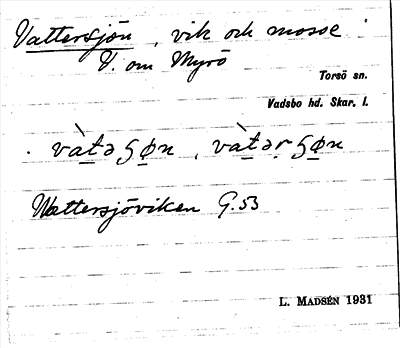 Vattersjön, vik och mosse
V. om Myrö
Torsö sn.
Vadsbo hd. Skar. l.
Wattersjöviken G.53
L. MADSÉN 1931